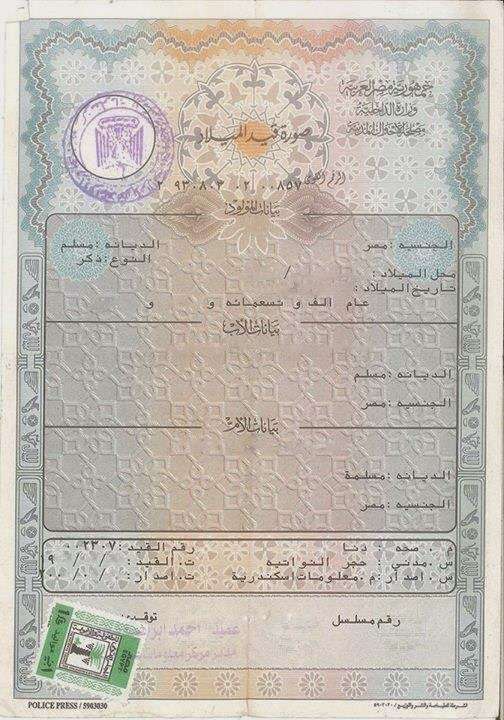 جمهورية مصر العربية
وزارة الداخلية
مصلحة الأحوال المدنية
صورة قيد الميلاد
الرقم القومى
بيانات المولود
الجنسيه : مصر
الديانه : مسلم
النوع : ذكر
محل الميلاد : /
تاريخ الميلاد :
عام الف و تسعمائه و و
بيانات الأب
الديانه : مسلم
الجنسيه : مصر
بيانات الأم
الديانه : مسلمة
الجنسيه : مصر
م . صحه : دنا
رقم القيد : ٠٠٢٣٠٧
س . مدني : حجر النواتيه
ت . القيد :
س . اصدار : م . معلومات اسكندرية
ت . اصدار :
رقم مسلسل
توقيع
POLICE PRESS / 5903030